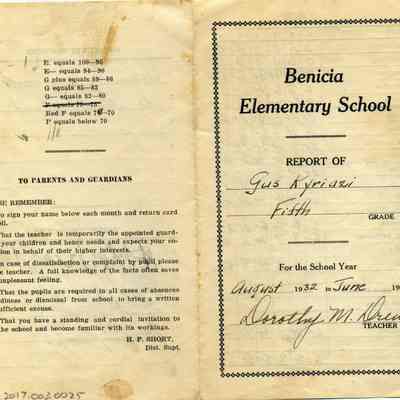 E equals 100—95
E— equals 94—90
G plus equals 89—86
G equals 85—83
G— equals 82—80
F equals 79—75
Red F equals 76—70
P equals below 70
TO PARENTS AND GUARDIANS
SE REMEMBER:
To sign your name below each month and return card
oll.
That the teacher is temporarily the appointed guard-
your children and hence needs and expects your co-
sion in behalf of their higher interests.
n case of dissatisfaction or complaint by pupil please
e teacher. A full knowledge of the facts often saves
unpleasant feeling.
That the pupils are required in all cases of absences
rdiness or dismissal from school to bring a written
ufficient excuse.
That you have a standing and cordial invitation to
the school and become familiar with its workings.
H. P. SHORT,
Dist. Supt.
2017.003.0025
Benicia
Elementary School
REPORT OF
Gus Kyriazi
Fifth
GRADE
For the School Year
August 1932 to June 19
Dorothy M. Drew
TEACHER